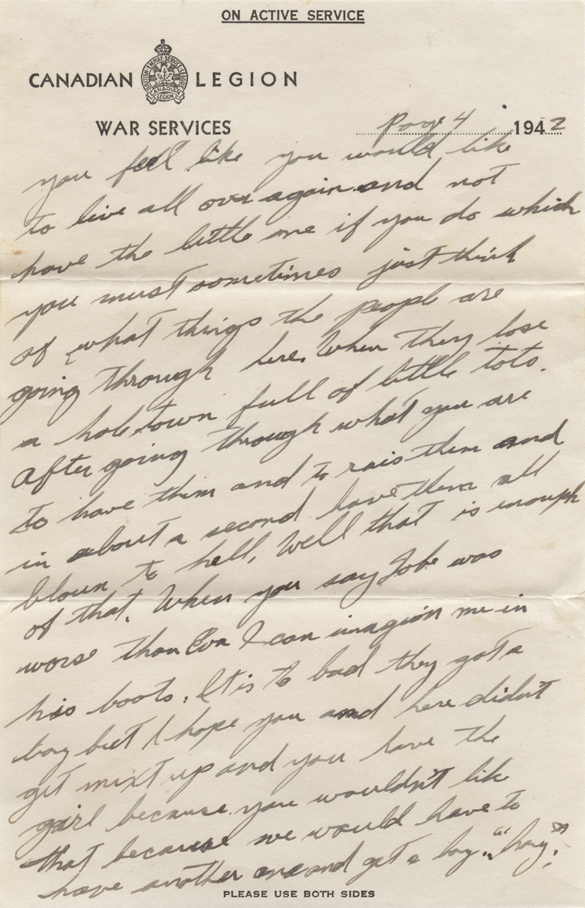 ON ACTIVE SERVICE
CANADIAN LEGION
WAR SERVICES
Page 4 1942
you feel like you would like
to live all over again and not
have the little one if you do which
you must sometimes just think
of what things the people are
going through here. When they lose
a hole town full of little tots.
After going through what you are
to have them and to rais them and
in about a second have them all
blown to hell. Well that is enough
of that. When you say Jobe was
worse than Eva I can imagion me in
his boots. It is to bad they got a
boy but I hope you and here didn't
get mixt up and you have the
girl because you wouldn't like
that because we would have to
have another one and get a boy. "hay"
PLEASE USE BOTH SIDES